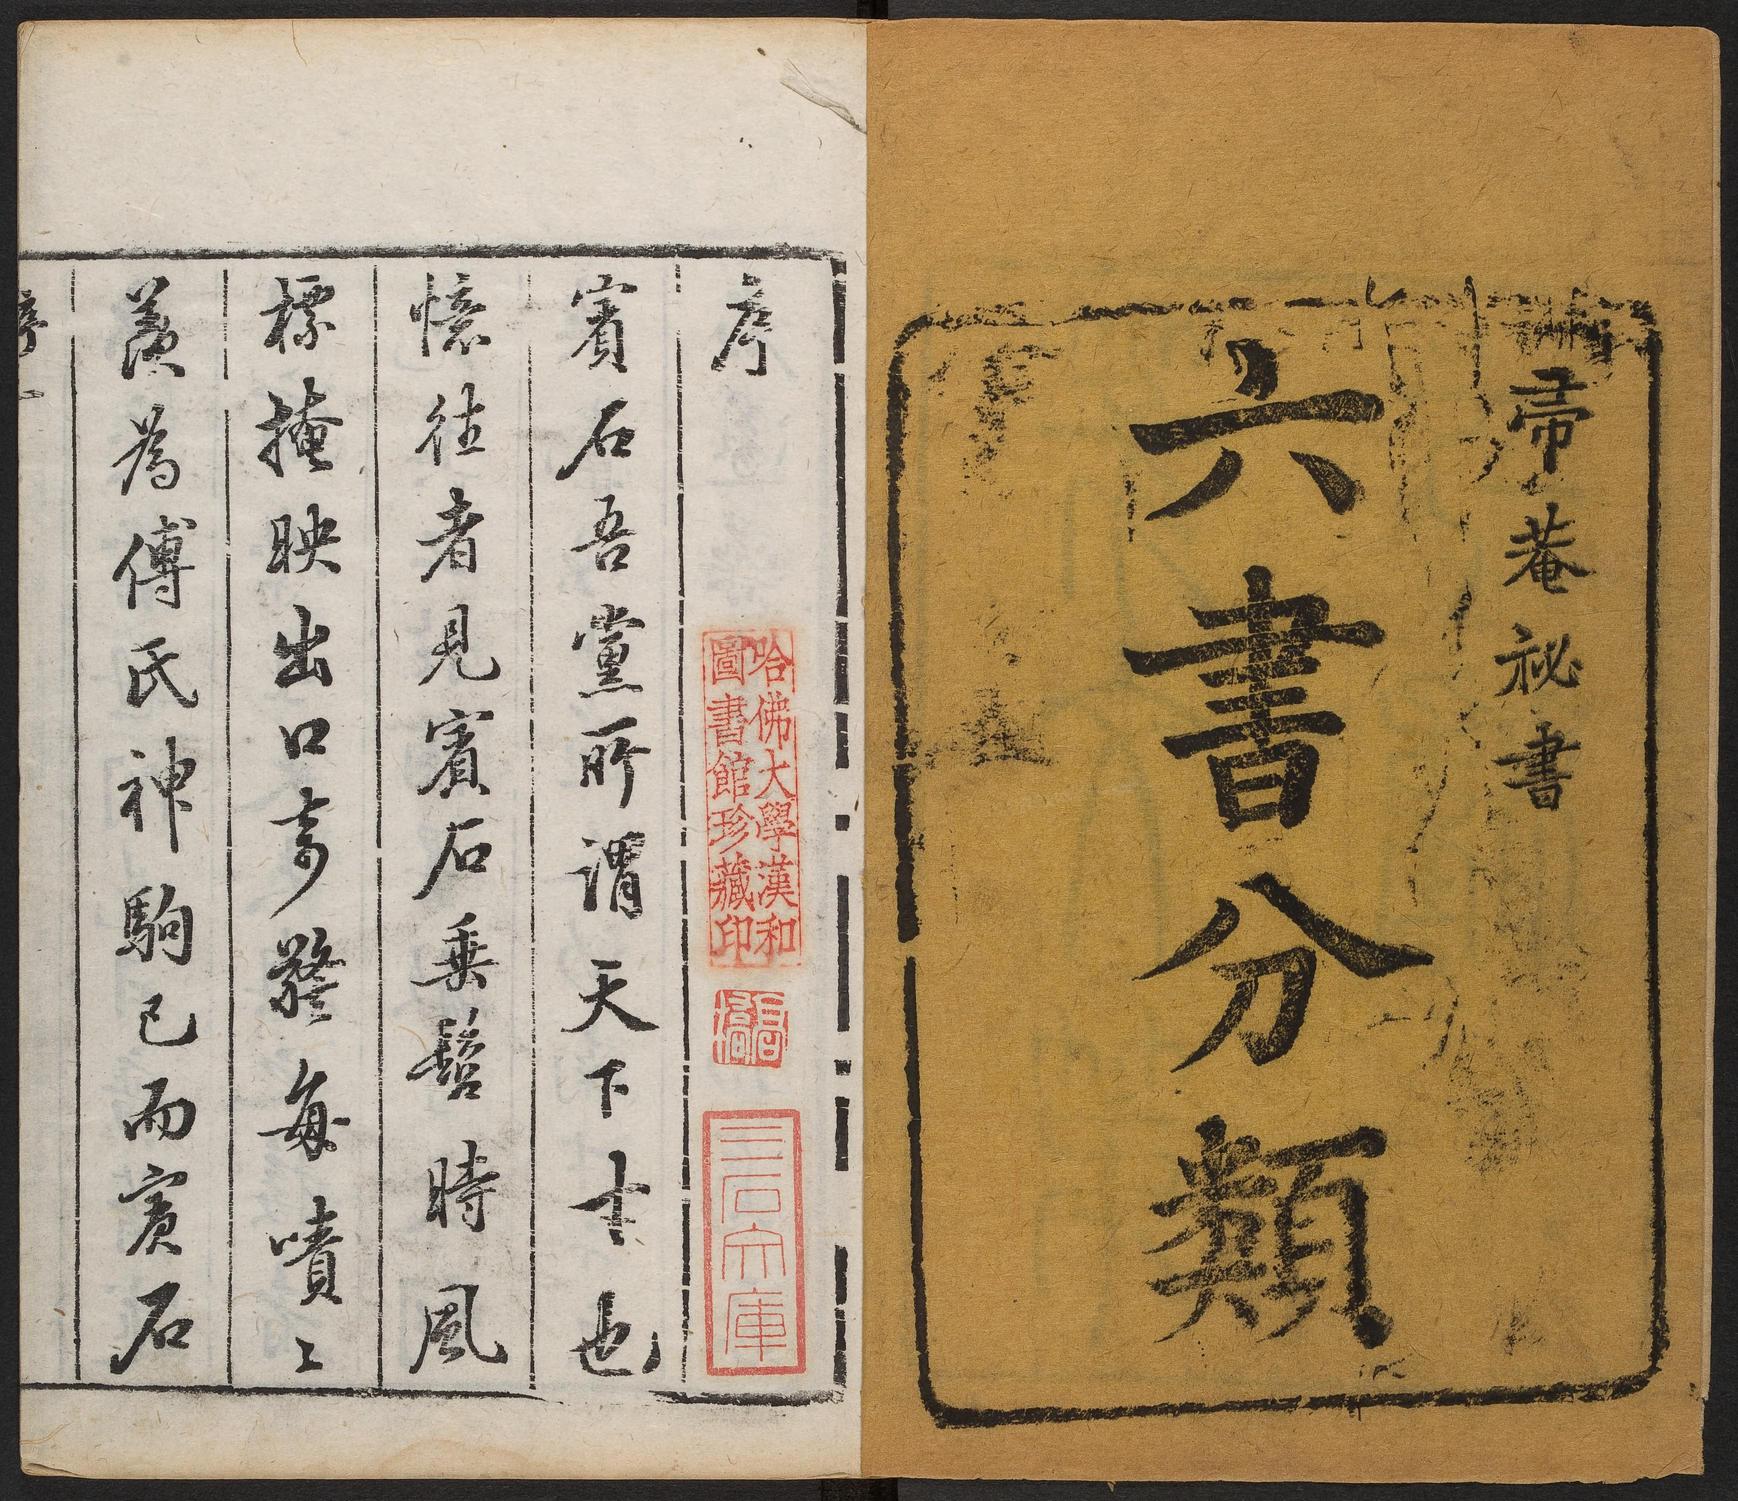 帚菴祕書
六書分類
序
哈佛大學漢和
圖書館珍藏印
賓石吾黨所謂天下士也
憶往者見賓石垂髫時風
標掩映出口奇警每嘖〻
羨為傅氏神駒已而賓石
序一